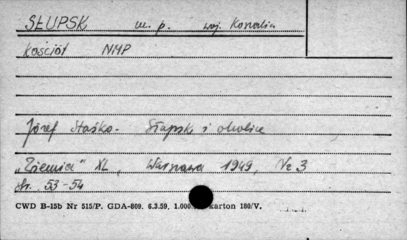 SŁUPSK m. p. woj. Koszalin
Kościół NMP
Józef Staśko. Słupsk i okolice
„Ziemia" XL, Warszawa 1949, Nr 3
str. 53-54
CWD B-15b Nr 515/P. GDA-809. 6.3.59. 1.000 karton 180/V.